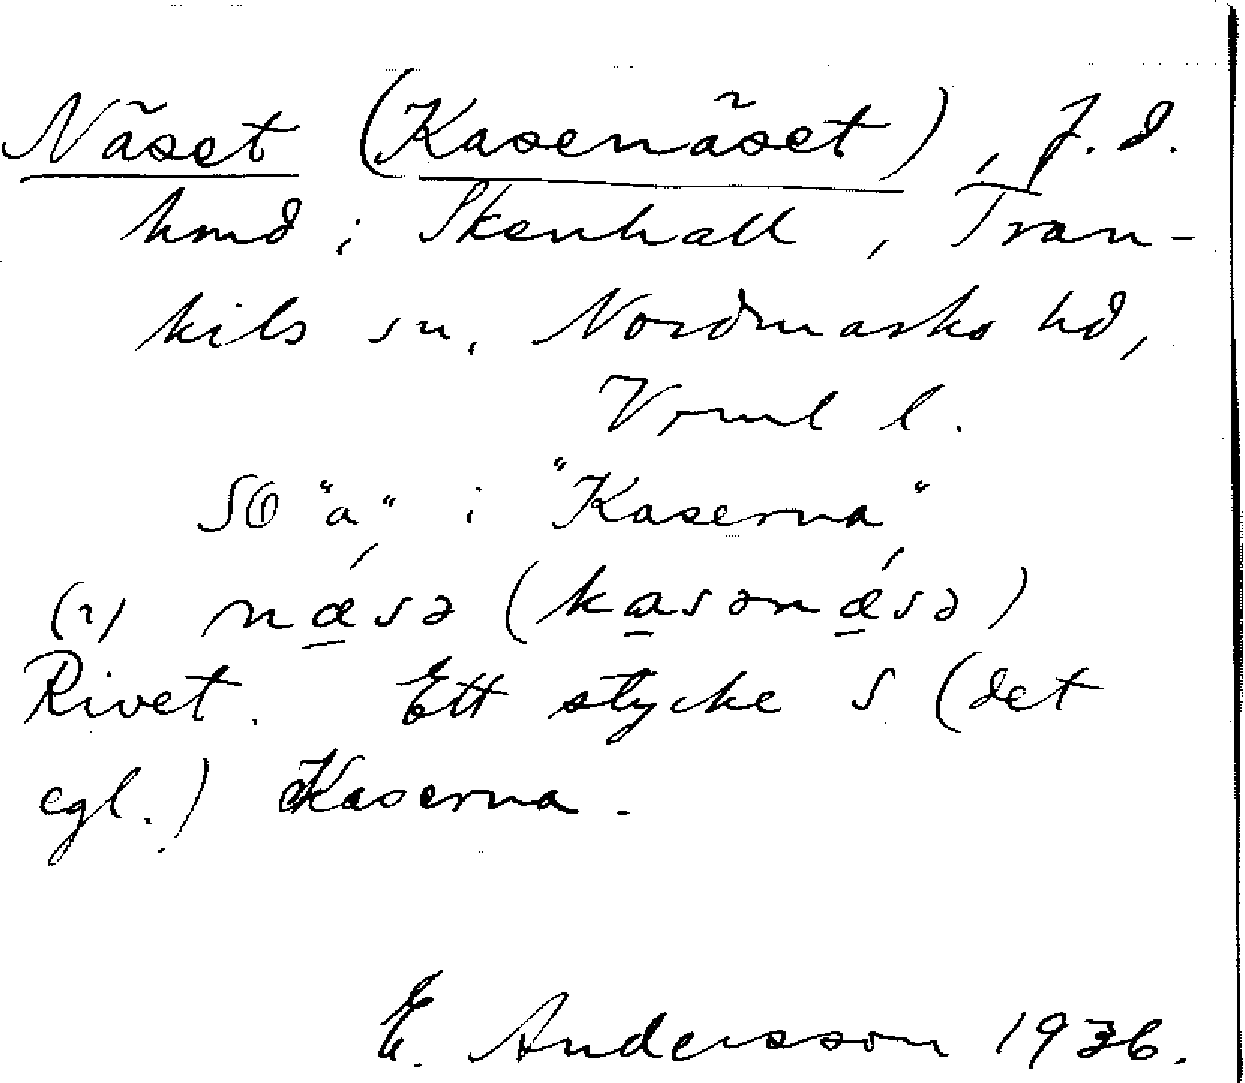 Näset (Kasenäset), f.d.
hmd i Skenhall, Tran-
kils sn, Nordmarks hd,
Vrml l.
SO "a" i "Kaserna"
(2) næ̀sə (kasənæ̀sə)
Rivet. Ett stycke S (det
egl.) Kaserna.
E. Andersson 1936.